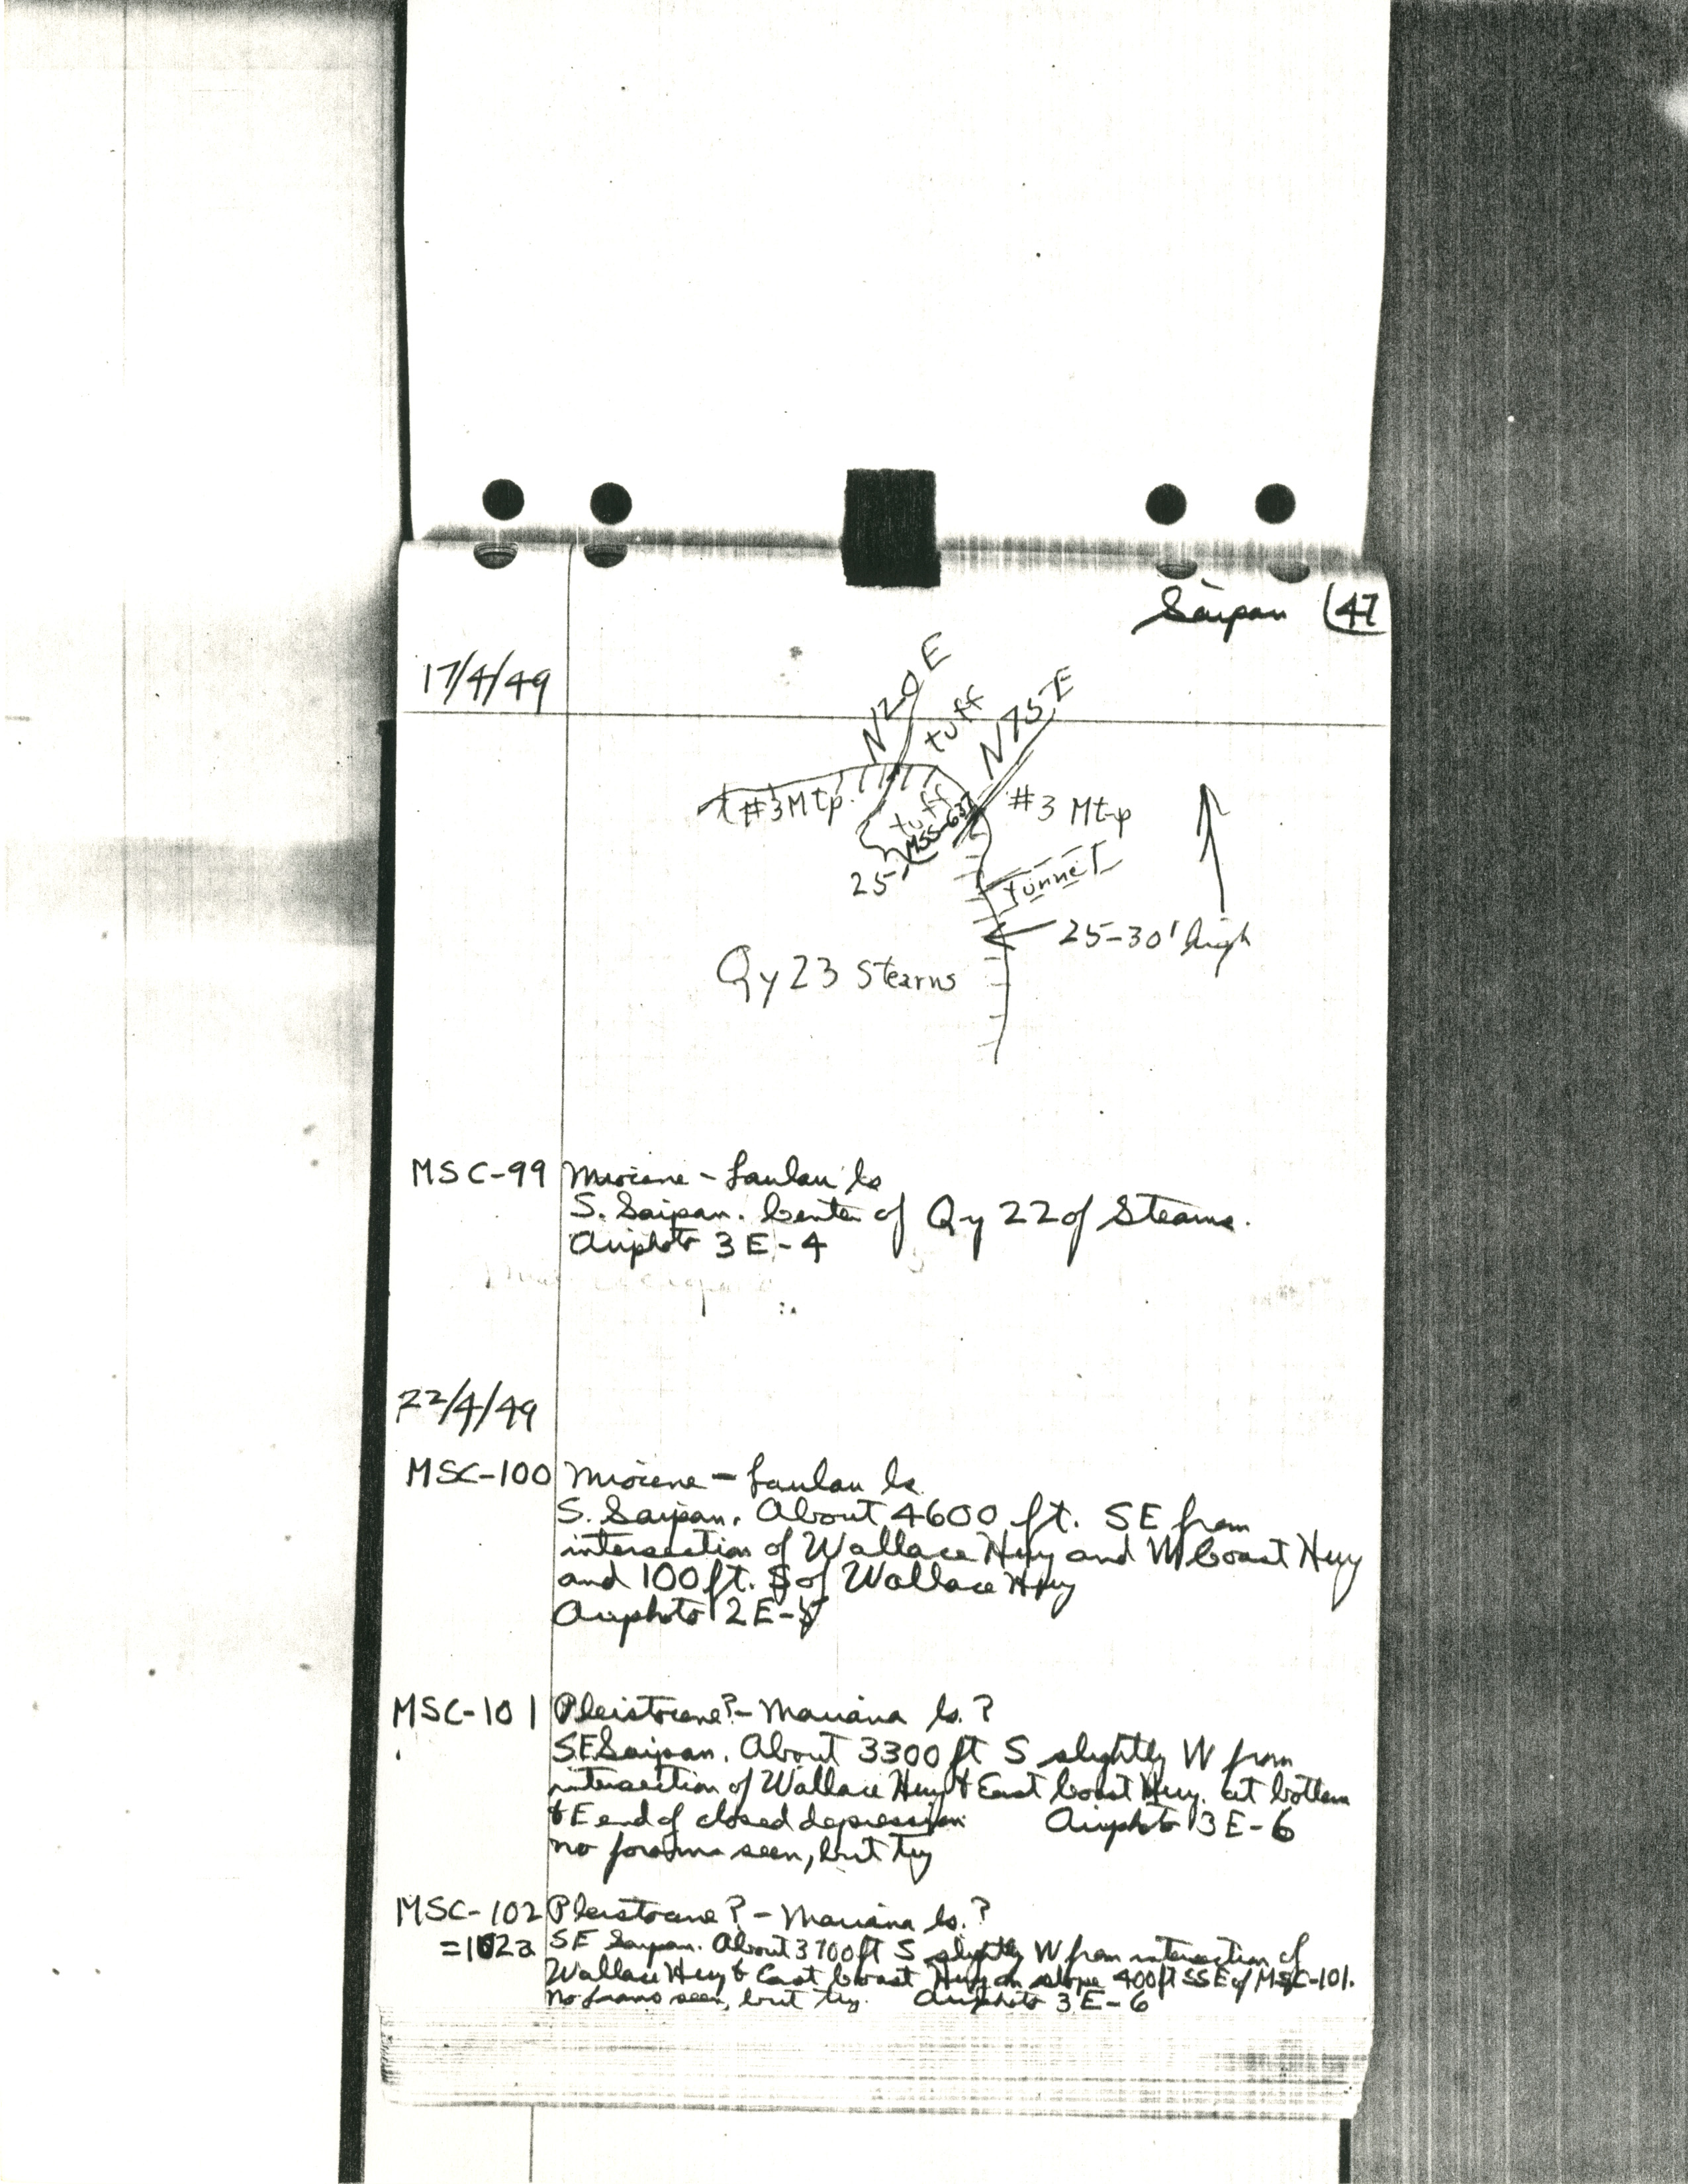 Saipan 47
17/4/49
N20E
tuff
N75E
#3 Mtp.
tuff
MSS-637
#3 Mtp
25'
tunnel
25-30' high
Qy 23 Stearns
MSC-99 Miocene - Laulau ls
S. Saipan. Center of Qy 22 of Stearns.
Airphoto 3E-4
22/4/49
MSC-100 Miocene - Laulau ls.
S. Saipan. About 4600 ft. SE from
intersection of Wallace Hwy and W Coast Hwy
and 100 ft. S of Wallace Hwy
Airphoto 2E-
MSC-101 Pleistocene? - Mariana ls.?
SE Saipan. About 3300 ft S slightly W from
intersection of Wallace Hwy & East Coast Hwy. at bottom
& E end of closed depression Airphoto 3E-6
no forams seen, but try
MSC-102 Pleistocene? - Mariana ls.?
=102a SE Saipan. About 3700 ft S slightly W from intersection of
Wallace Hwy & East Coast Hwy on slope 400 ft SSE of MSC-101.
No forams seen, but try. Airphoto 3E-6